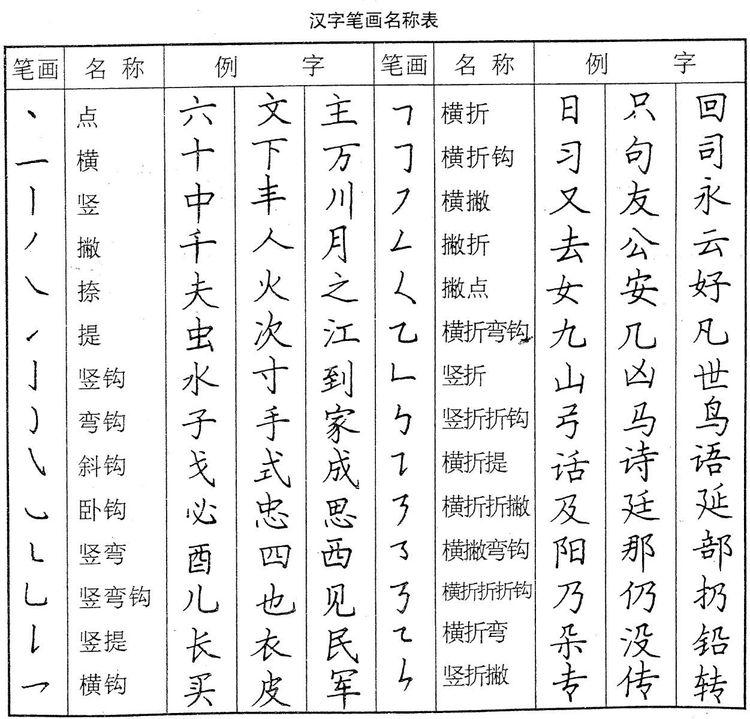 汉字笔画名称表
笔画 名称 例字 笔画 名称 例字
丶 点 六 文 主 ㇕ 横折 日 只 回
一 横 十 下 万 ㇆ 横折钩 习 句 司
丨 竖 中 丰 川 ㇇ 横撇 又 友 永
丿 撇 千 人 月 ㇜ 撇折 去 公 云
㇏ 捺 夫 火 之 ㇛ 撇点 女 安 好
㇀ 提 虫 次 江 ㇈ 横折弯钩 九 几 凡
亅 竖钩 水 寸 到 ㇗ 竖折 山 凶 世
㇁ 弯钩 子 手 家 ㇉ 竖折折钩 弓 马 鸟
㇂ 斜钩 戈 式 成 ㇊ 横折提 话 诗 语
㇃ 卧钩 必 忠 思 ㇋ 横折折撇 及 廷 延
㇄ 竖弯 酉 四 西 ㇌ 横撇弯钩 阳 那 部
㇟ 竖弯钩 儿 也 见 ㇡ 横折折折钩 乃 仍 扔
㇙ 竖提 长 衣 民 ㇍ 横折弯 朵 没 铅
㇖ 横钩 买 皮 军 ㇞ 竖折撇 专 传 转